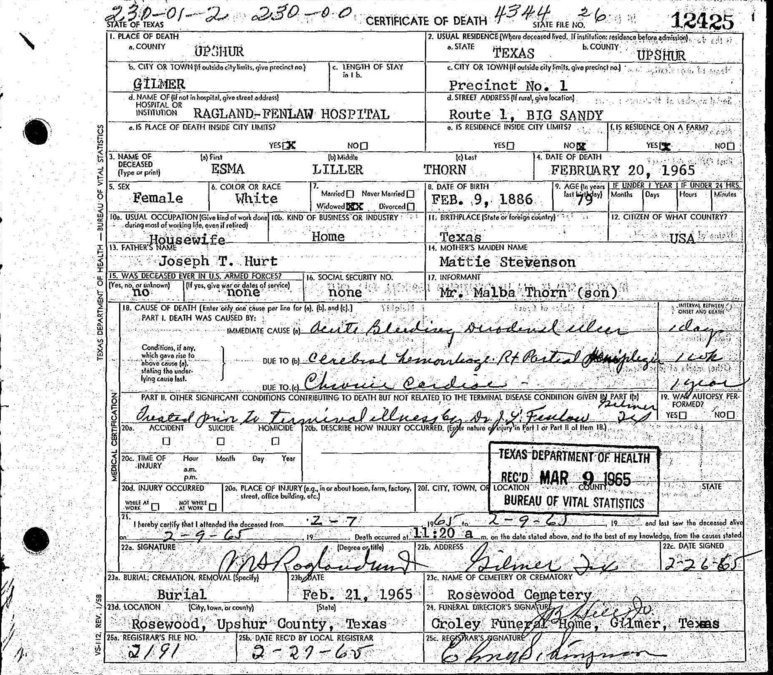 230-01-2 230-00 CERTIFICATE OF DEATH 4344 26
STATE OF TEXAS STATE FILE NO. 12425
1. PLACE OF DEATH 2. USUAL RESIDENCE (Where deceased lived. If institution: residence before admission)
a. COUNTY UPSHUR a. STATE TEXAS b. COUNTY UPSHUR
b. CITY OR TOWN (If outside city limits, give precinct no.) c. LENGTH OF STAY in 1 b. c. CITY OR TOWN (If outside city limits, give precinct no.)
GILMER Precinct No. 1
d. NAME OF (If not in hospital, give street address) HOSPITAL OR INSTITUTION d. STREET ADDRESS (If rural, give location)
RAGLAND-FENLAW HOSPITAL Route 1, BIG SANDY
e. IS PLACE OF DEATH INSIDE CITY LIMITS? e. IS RESIDENCE INSIDE CITY LIMITS? f. IS RESIDENCE ON A FARM?
YES X NO YES NO X YES X NO
3. NAME OF DECEASED (Type or print) (a) First (b) Middle (c) Last 4. DATE OF DEATH
ESMA LILLER THORN FEBRUARY 20, 1965
5. SEX 6. COLOR OR RACE 7. Married Never Married 8. DATE OF BIRTH 9. AGE (In years last birthday) IF UNDER 1 YEAR IF UNDER 24 HRS.
Female White Widowed XX Divorced FEB. 9, 1886 79 Months Days Hours Minutes
10a. USUAL OCCUPATION (Give kind of work done during most of working life, even if retired) 10b. KIND OF BUSINESS OR INDUSTRY 11. BIRTHPLACE (State or foreign country) 12. CITIZEN OF WHAT COUNTRY?
Housewife Home Texas USA
13. FATHER'S NAME 14. MOTHER'S MAIDEN NAME
Joseph T. Hurt Mattie Stevenson
15. WAS DECEASED EVER IN U.S. ARMED FORCES? 16. SOCIAL SECURITY NO. 17. INFORMANT
(Yes, no, or unknown) (If yes, give war or dates of service)
no none none Mr. Malba Thorn (son)
18. CAUSE OF DEATH (Enter only one cause per line for (a), (b), and (c).) INTERVAL BETWEEN ONSET AND DEATH
PART I. DEATH WAS CAUSED BY:
IMMEDIATE CAUSE (a) Acute Bleeding Duodenal ulcer 1 day
Conditions, if any, which gave rise to above cause (a), stating the under- lying cause last.
DUE TO (b) Cerebral hemorrhage. Rt Partial Hemiplegia 1 wk
DUE TO (c) Chronic Cardiac 1 year
PART II. OTHER SIGNIFICANT CONDITIONS CONTRIBUTING TO DEATH BUT NOT RELATED TO THE TERMINAL DISEASE CONDITION GIVEN IN PART I(a) 19. WAS AUTOPSY PER- FORMED?
Treated prior to terminal illness by Dr J. L. Fenlaw Gilmer Tex YES NO
20a. ACCIDENT SUICIDE HOMICIDE 20b. DESCRIBE HOW INJURY OCCURRED. (Enter nature of injury in Part I or Part II of Item 18.)
20c. TIME OF INJURY Hour Month Day Year
a.m.
p.m.
TEXAS DEPARTMENT OF HEALTH
REC'D MAR 9 1965
BUREAU OF VITAL STATISTICS
20d. INJURY OCCURRED 20e. PLACE OF INJURY (e.g., in or about home, farm, factory, street, office building, etc.) 20f. CITY, TOWN, OR LOCATION COUNTY STATE
WHILE AT WORK NOT WHILE AT WORK
21. I hereby certify that I attended the deceased from 2-7 1965 to 2-9-65 19 and last saw the deceased alive
on 2-9-65 19 Death occurred at 11:20 a m. on the date stated above, and to the best of my knowledge, from the causes stated.
22a. SIGNATURE (Degree or title) 22b. ADDRESS 22c. DATE SIGNED
M S Ragland md Gilmer Tex 2-26-65
23a. BURIAL, CREMATION, REMOVAL (Specify) 23b. DATE 23c. NAME OF CEMETERY OR CREMATORY
Burial Feb. 21, 1965 Rosewood Cemetery
23d. LOCATION (City, town, or county) (State) 24. FUNERAL DIRECTOR'S SIGNATURE
Rosewood, Upshur County, Texas Croley Funeral Home, Gilmer, Texas
25a. REGISTRAR'S FILE NO. 25b. DATE REC'D BY LOCAL REGISTRAR 25c. REGISTRAR'S SIGNATURE
2191 2-27-65
TEXAS DEPARTMENT OF HEALTH — BUREAU OF VITAL STATISTICS
MEDICAL CERTIFICATION
VS-112, REV. 1/58